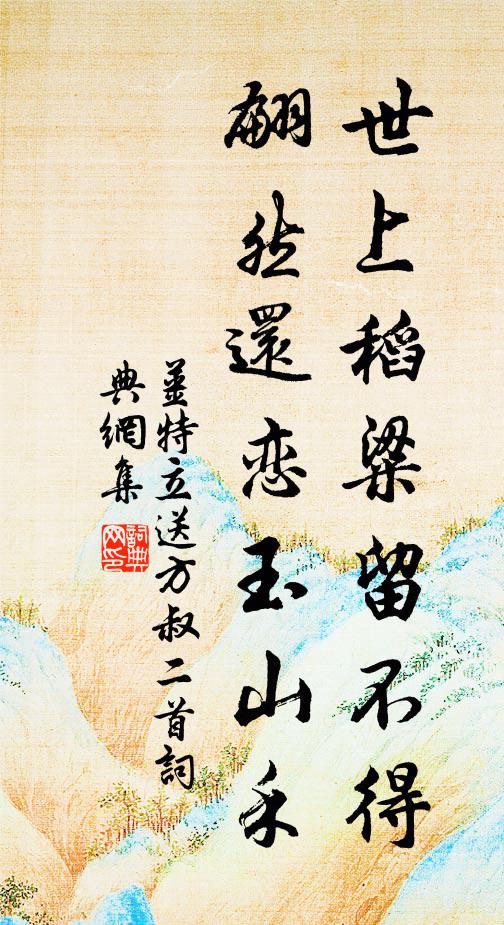 世上稻粱留不得
翩然還恋玉山禾
姜特立送方叔二首詞
典網集
詞典
网印